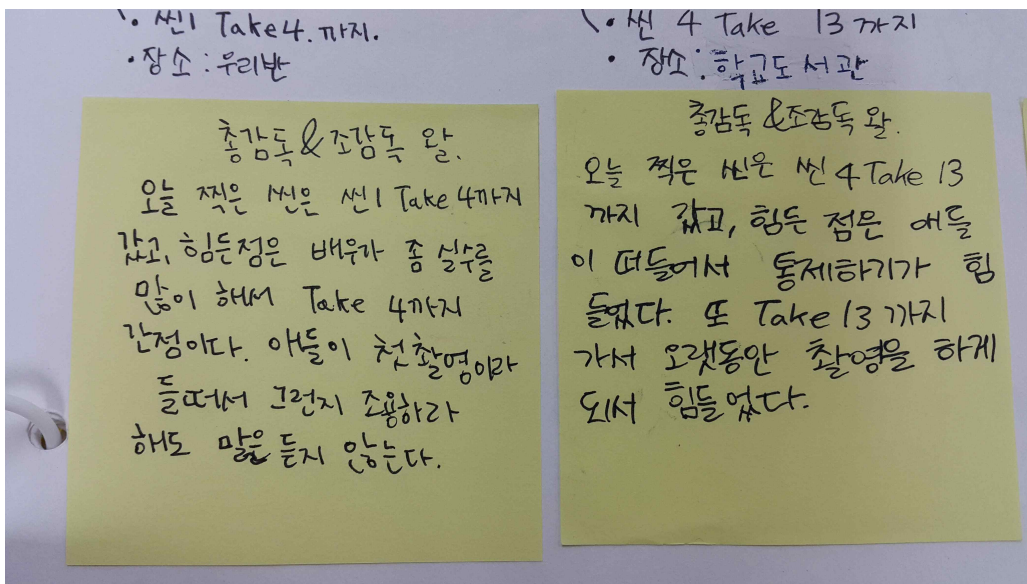 · 씬1 Take4. 까지.
· 장소 : 우리반
총감독 & 조감독 왈.
오늘 찍은 씬은 씬1 Take 4까지
갔고, 힘든점은 배우가 좀 실수를
많이 해서 Take 4까지
간점이다. 애들이 첫촬영이라
들떠서 그런지 조용하라
해도 말을 듣지 않는다.
· 씬 4 Take 13 까지
· 장소 : 학교도서관
총감독 & 조감독 왈.
오늘 찍은 씬은 씬 4 Take 13
까지 갔고, 힘든 점은 애들
이 떠들어서 통제하기가 힘
들었다. 또 Take 13 까지
가서 오랫동안 촬영을 하게
되서 힘들었다.